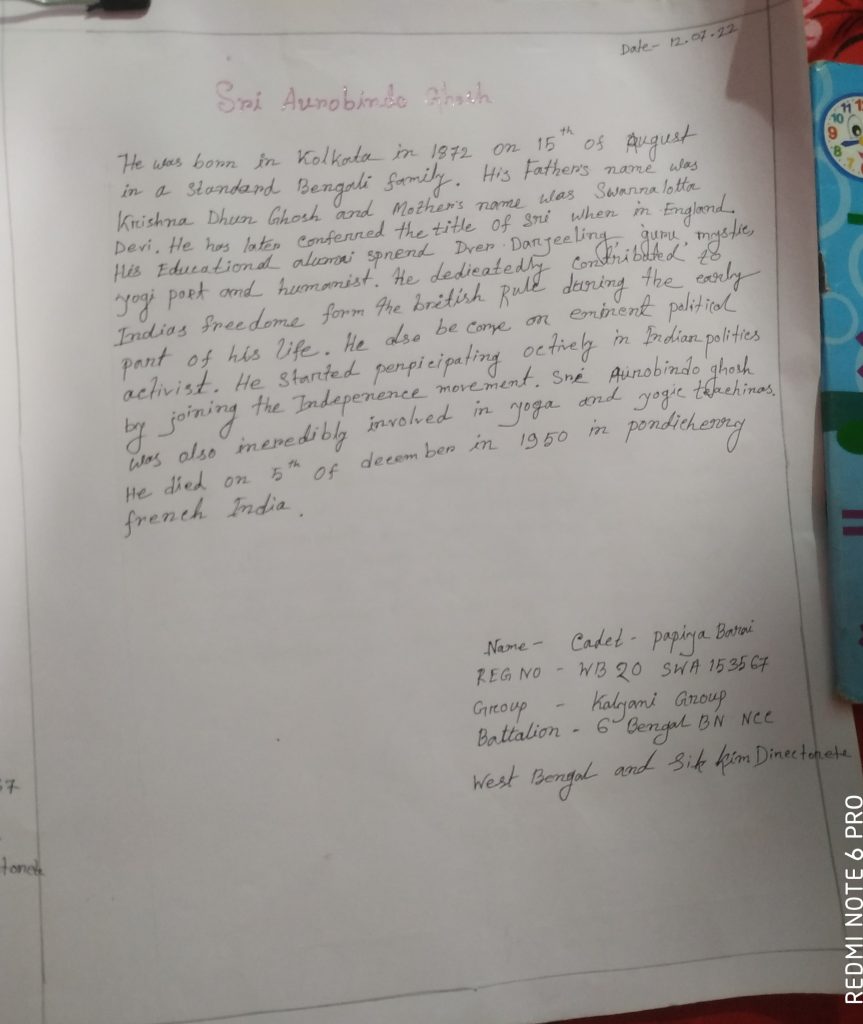 Date- 12.07.22
Sri Aurobindo Ghosh
He was born in Kolkata in 1872 on 15th of August
in a standard Bengali family. His Father's name was
Krishna Dhun Ghosh and Mother's name was Swarnalotta
Devi. He has later conferred the title of Sri when in England.
His Educational alumai spnend Dren Darjeeling guru, mystic,
yogi poet and humanist. He dedicatedly contributed to
Indias freedome form the british Rule during the early
part of his life. He also be come an eminent political
activist. He started perpicipating actively in Indian politics
by joining the Indepenence movement. Sri Aurobindo ghosh
was also incredibly involved in yoga and yogic teachings.
He died on 5th of december in 1950 in pondicherry
french India.
Name - Cadet - Papiya Barai
REG NO - WB 20 SWA 153567
Group - Kalyani Group
Battalion - 6 Bengal BN NCC
West Bengal and Sik kim Directorete
REDMI NOTE 6 PRO